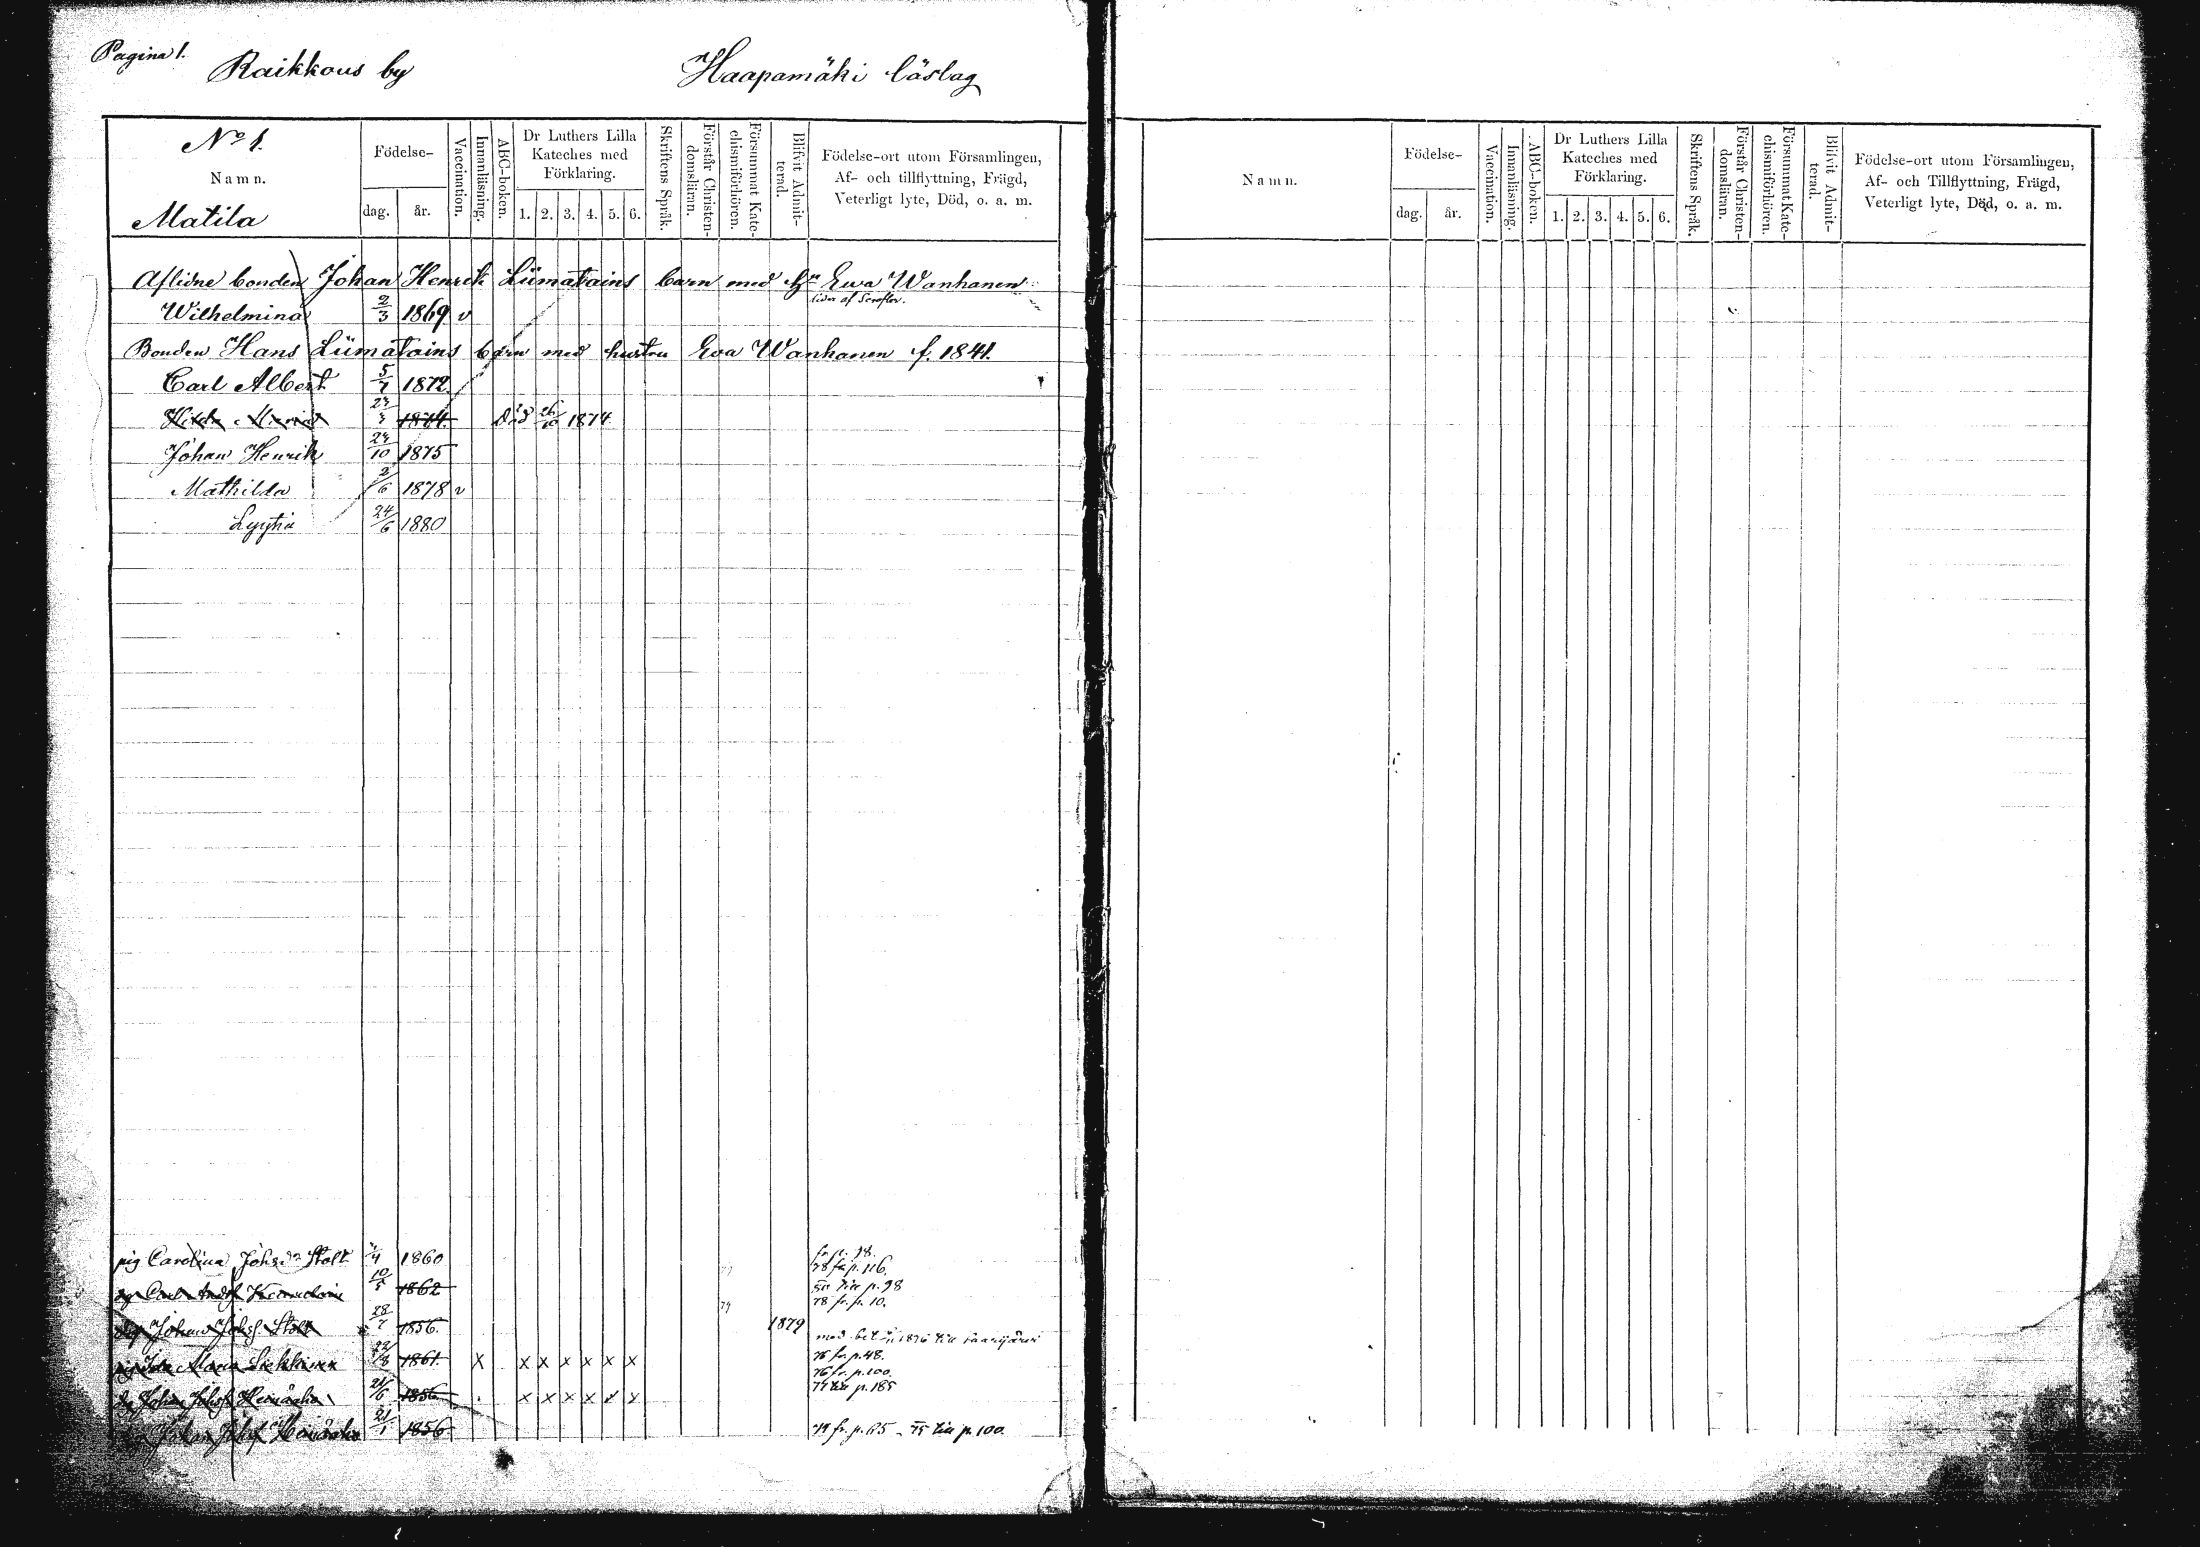 Pagina 1.
Raikkous by
Haapamäki läslag
No 1.
Namn.
Matila
Födelse-
dag. år.
Vaccination.
Innanläsning.
ABC-boken.
Dr Luthers Lilla
Kateches med
Förklaring.
1. 2. 3. 4. 5. 6.
Skriftens Språk.
Förstår Christen-
domsläran.
Försummat Kate-
chismiförhören.
Blifvit Admit-
terad.
Födelse-ort utom Församlingen,
Af- och tillflyttning, Frägd,
Veterligt lyte, Död, o. a. m.
Aflidne bonden Johan Henrik Liimatains barn med Ewa Wanhanen
lider af Scrofler.
Wilhelmina 2/3 1869 v
Bonden Hans Liimatains barn med hustru Eva Wanhanen f. 1841.
Carl Albert 5/7 1872
1874. död 1874
Johan Henrik 10 1875
Mathilda 2/6 1878 v
Lyytia 24/6 1880
fr. p. 18.
pig Carolina Stolt 4 1860
78 fr p. 116.
till p. 98
10 1862
78 fr. p. 10.
79
28/7 1856. 1879
med bet 1876 till
Maria 8 1861. X X X X X X X
75 fr. p. 48.
76 fr. p. 100.
Johan 6 1856. X X X X X X
77 till p. 185
Johan 21/1 1856
p. 65 – 75 till p. 100.
Namn.
Födelse-
dag. år.
Vaccination.
Innanläsning.
ABC-boken.
Dr Luthers Lilla
Kateches med
Förklaring.
1. 2. 3. 4. 5. 6.
Skriftens Språk.
Förstår Christen-
domsläran.
Försummat Kate-
chismiförhören.
Blifvit Admit-
terad.
Födelse-ort utom Församlingen,
Af- och Tillflyttning, Frägd,
Veterligt lyte, Död, o. a. m.